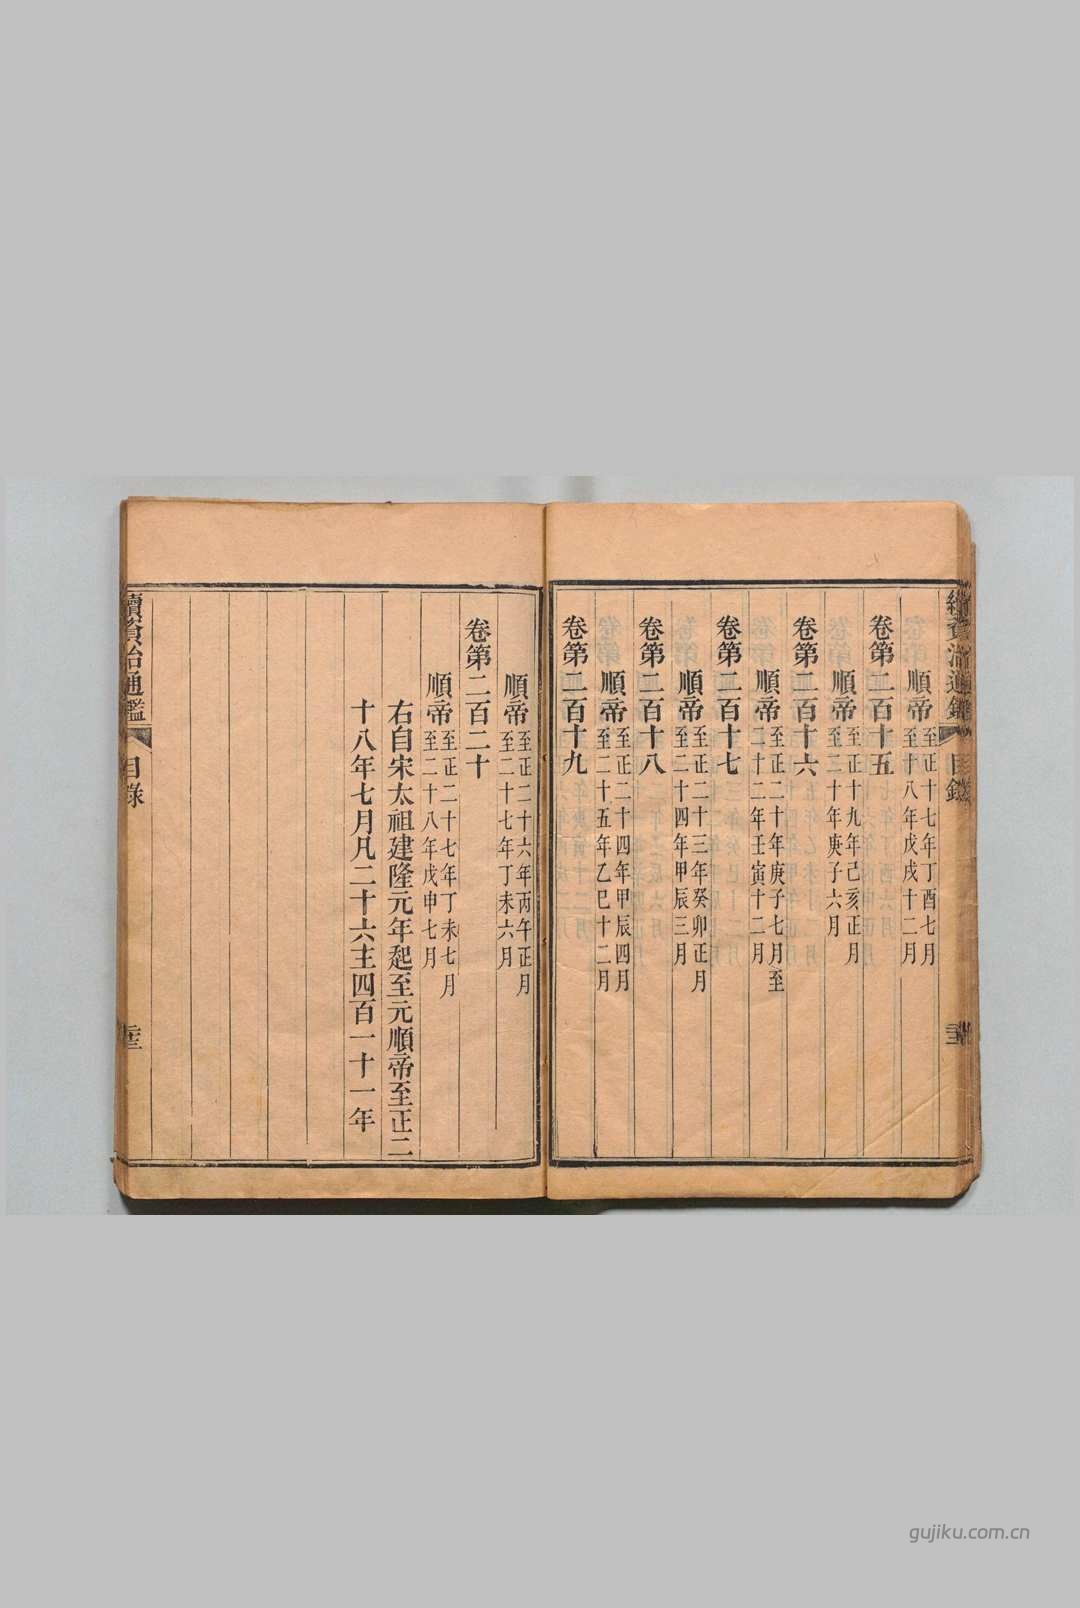 續資治通鑑 目錄
順帝 至正十七年丁酉七月
至十八年戊戌十二月
卷第二百十五
順帝 至正十九年己亥正月
至二十年庚子六月
卷第二百十六
順帝 至正二十年庚子七月至
二十二年壬寅十二月
卷第二百十七
順帝 至正二十三年癸卯正月
至二十四年甲辰三月
卷第二百十八
順帝 至正二十四年甲辰四月
至二十五年乙巳十二月
卷第二百十九
順帝 至正二十六年丙午正月
至二十七年丁未六月
卷第二百二十
順帝 至正二十七年丁未七月
至二十八年戊申七月
右自宋太祖建隆元年起至元順帝至正二
十八年七月凡二十六主四百一十一年
續資治通鑑 目錄
gujiku.com.cn